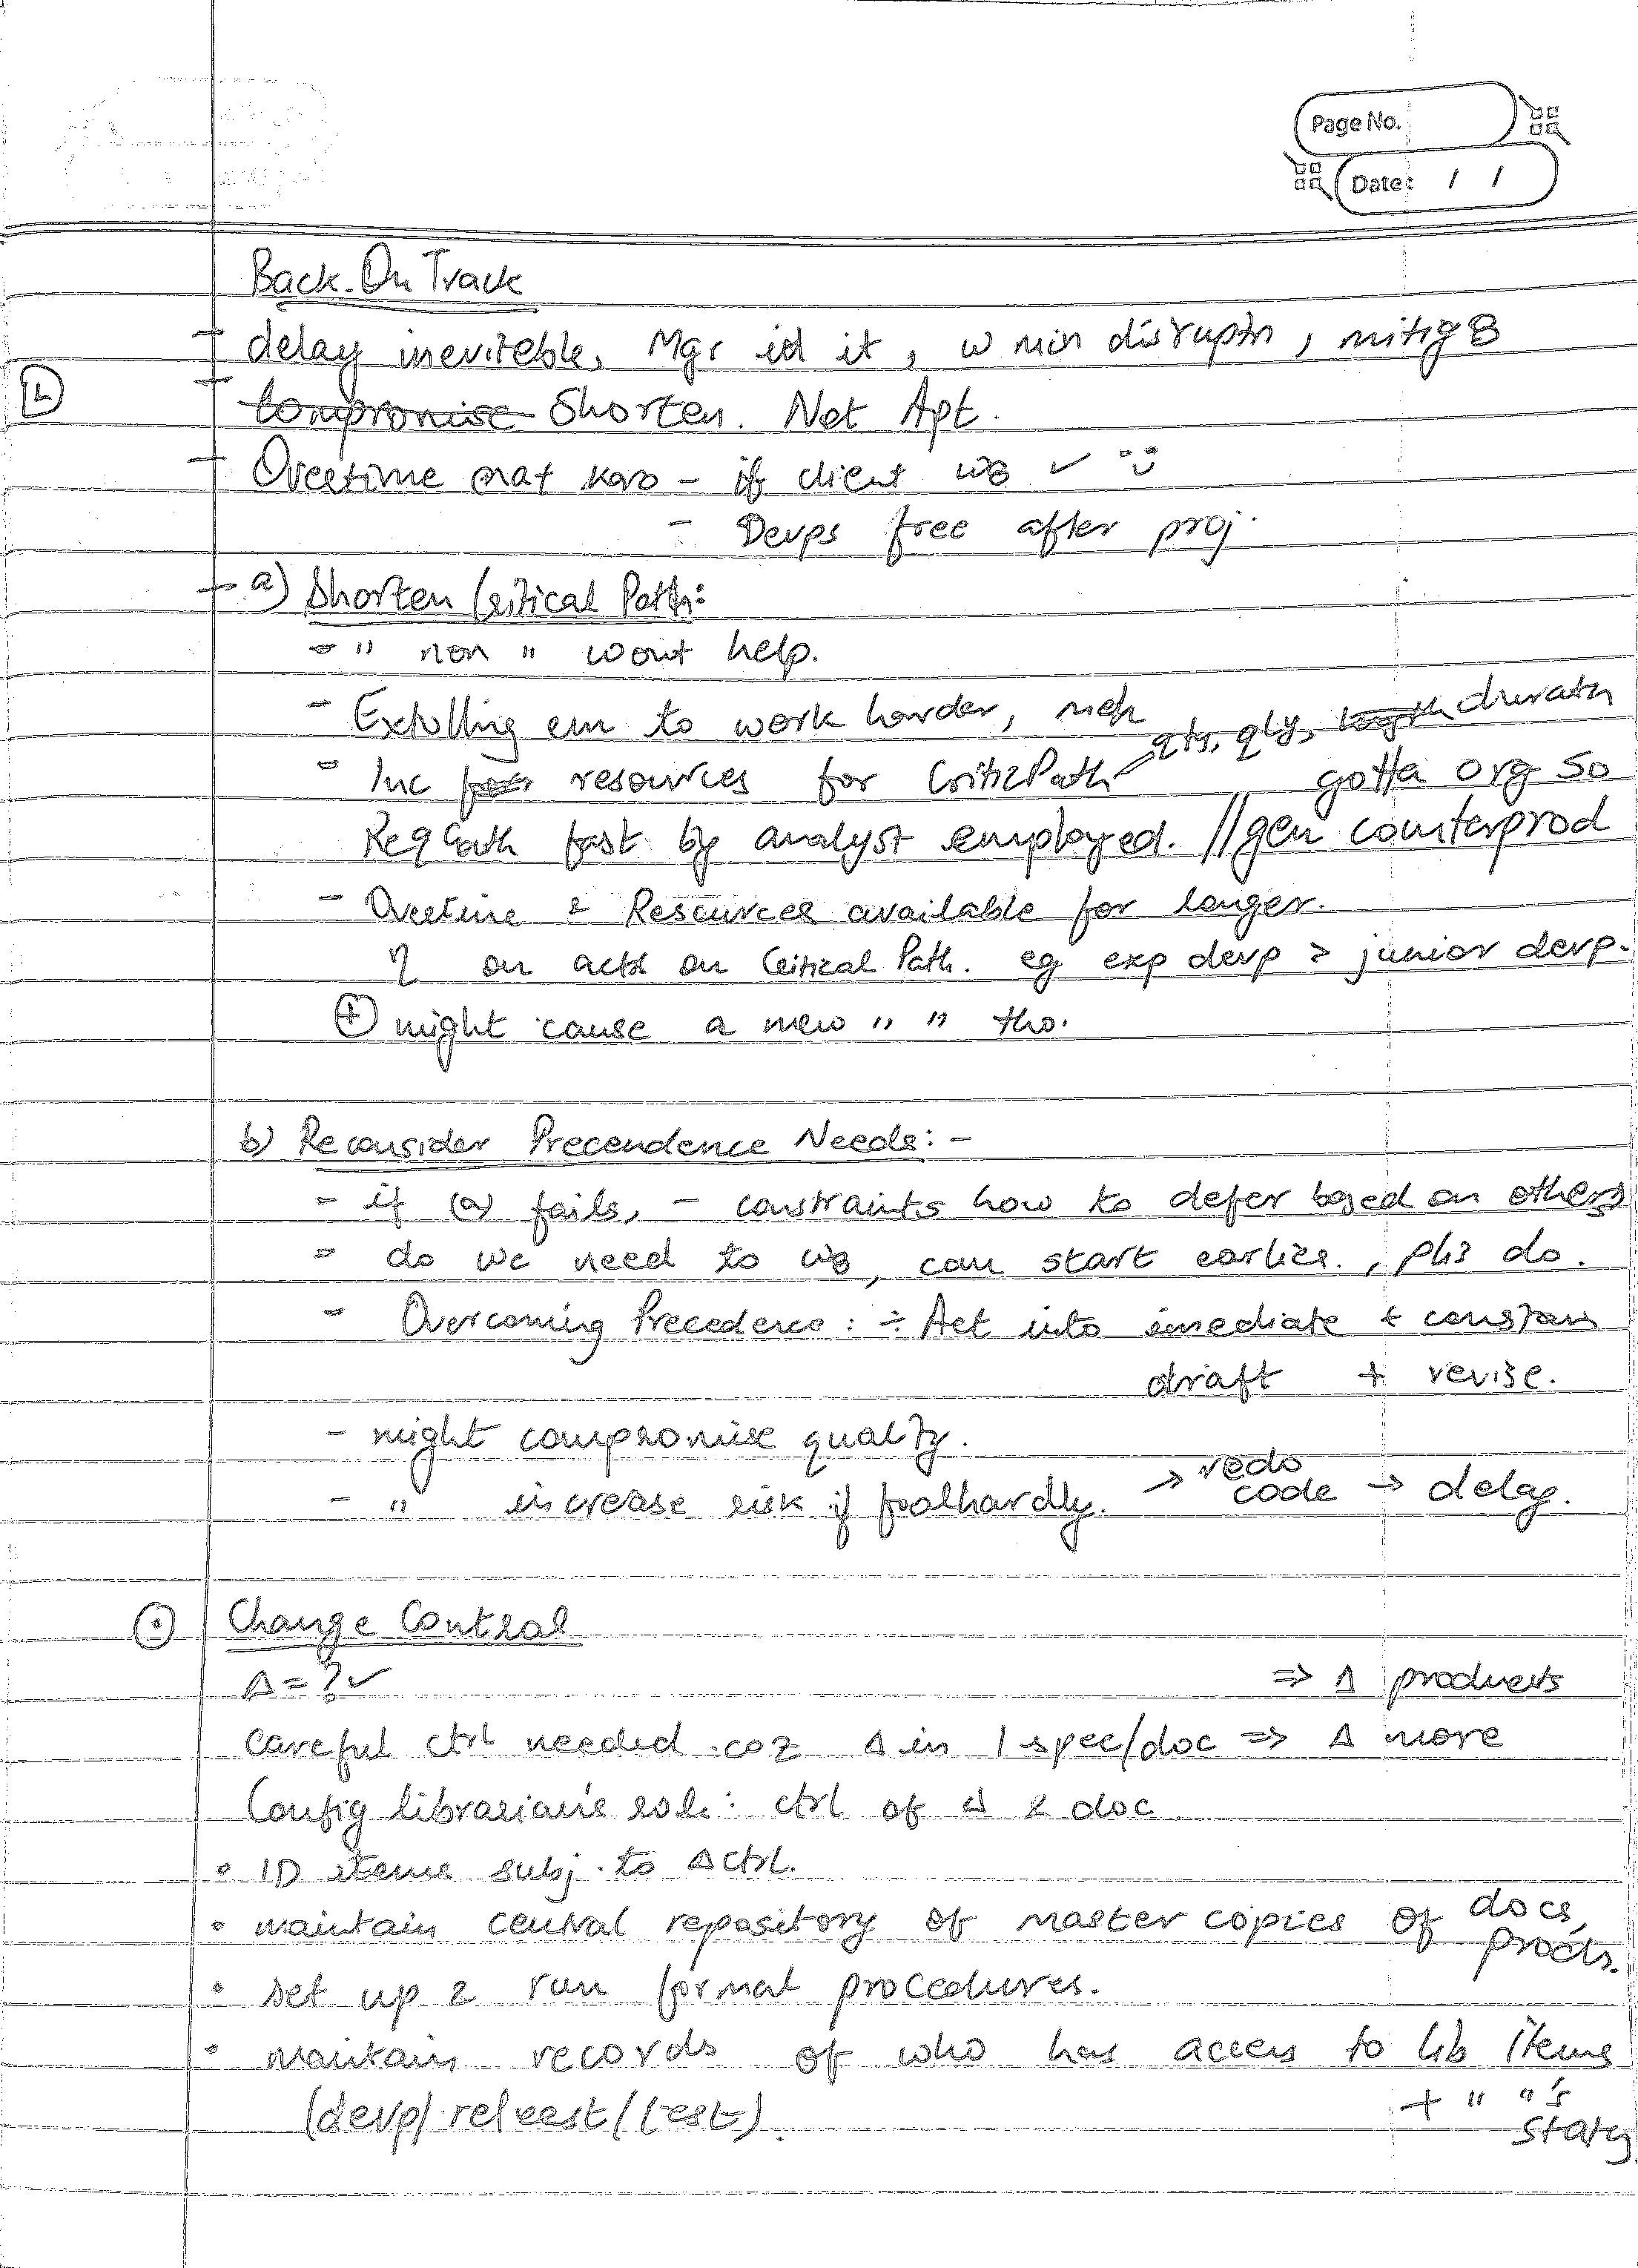 Page No.
Date: / /
Back On Track
- delay inevitable, Mgr id it, w min disruptn, mitig8
L
- Compromise Shorten. Net Apt.
- Overtime mat karo - if client w8 ✓
- Devps free after proj.
- a) Shorten Critical Path:
- " non " wont help.
- Extolling em to work harder, meh
- Inc resources for CriticPath qty, qly, length duratn
gotta org so
ReqGath fast by analyst employed. // gen counterprod
- Overtime & Resources available for longer.
η on acts on Critical Path. eg exp devp > junior devp.
+ might cause a new " " tho.
b) Reconsider Precendence Needs:-
- if (a) fails, - constraints how to defer based on others
- do we need to w8, can start earlier., pls do.
- Overcoming Precedence: ÷ Act into imediate + constan
draft + revise.
- might compromise quality.
- " increase risk if foolhardly. → redo code → delay.
Change Control
Δ = ? ✓ ⇒ Δ products
careful ctrl needed coz Δ in 1 spec/doc ⇒ Δ more
Config librarian's role: ctrl of Δ & doc
• ID items subj. to Δ ctrl.
• maintain central repository of master copies of docs, prods.
• set up & run formal procedures.
• maintain records of who has access to lib items
(devp/ /test). + " "'s